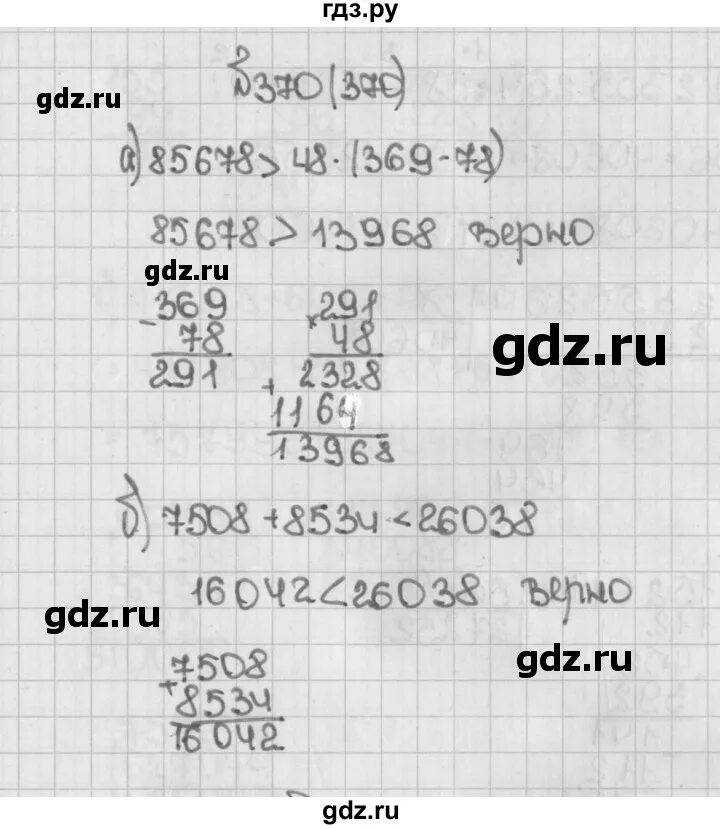 гдз.ру
№370(370)
gdz.ru
а) 85678 > 48·(369-78)
85678 > 13968 верно
gdz.ru
- 369
78
291
× 291
48
+ 2328
1164
13968
gdz.ru
б) 7508 + 8534 < 26038
16042 < 26038 верно
gdz.ru
gdz.ru
+ 7508
8534
16042
gdz.ru